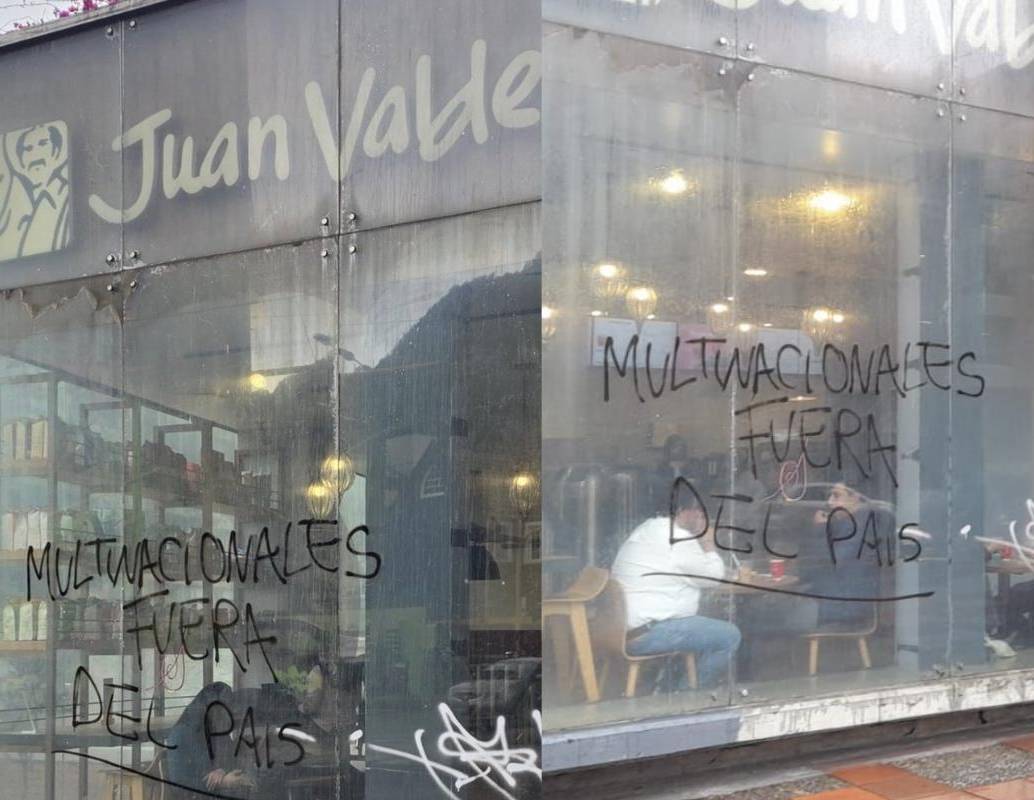 Juan Valde
MULTINACIONALES
FUERA
DEL PAIS
Juan Val
MULTINACIONALES
FUERA
DEL PAIS